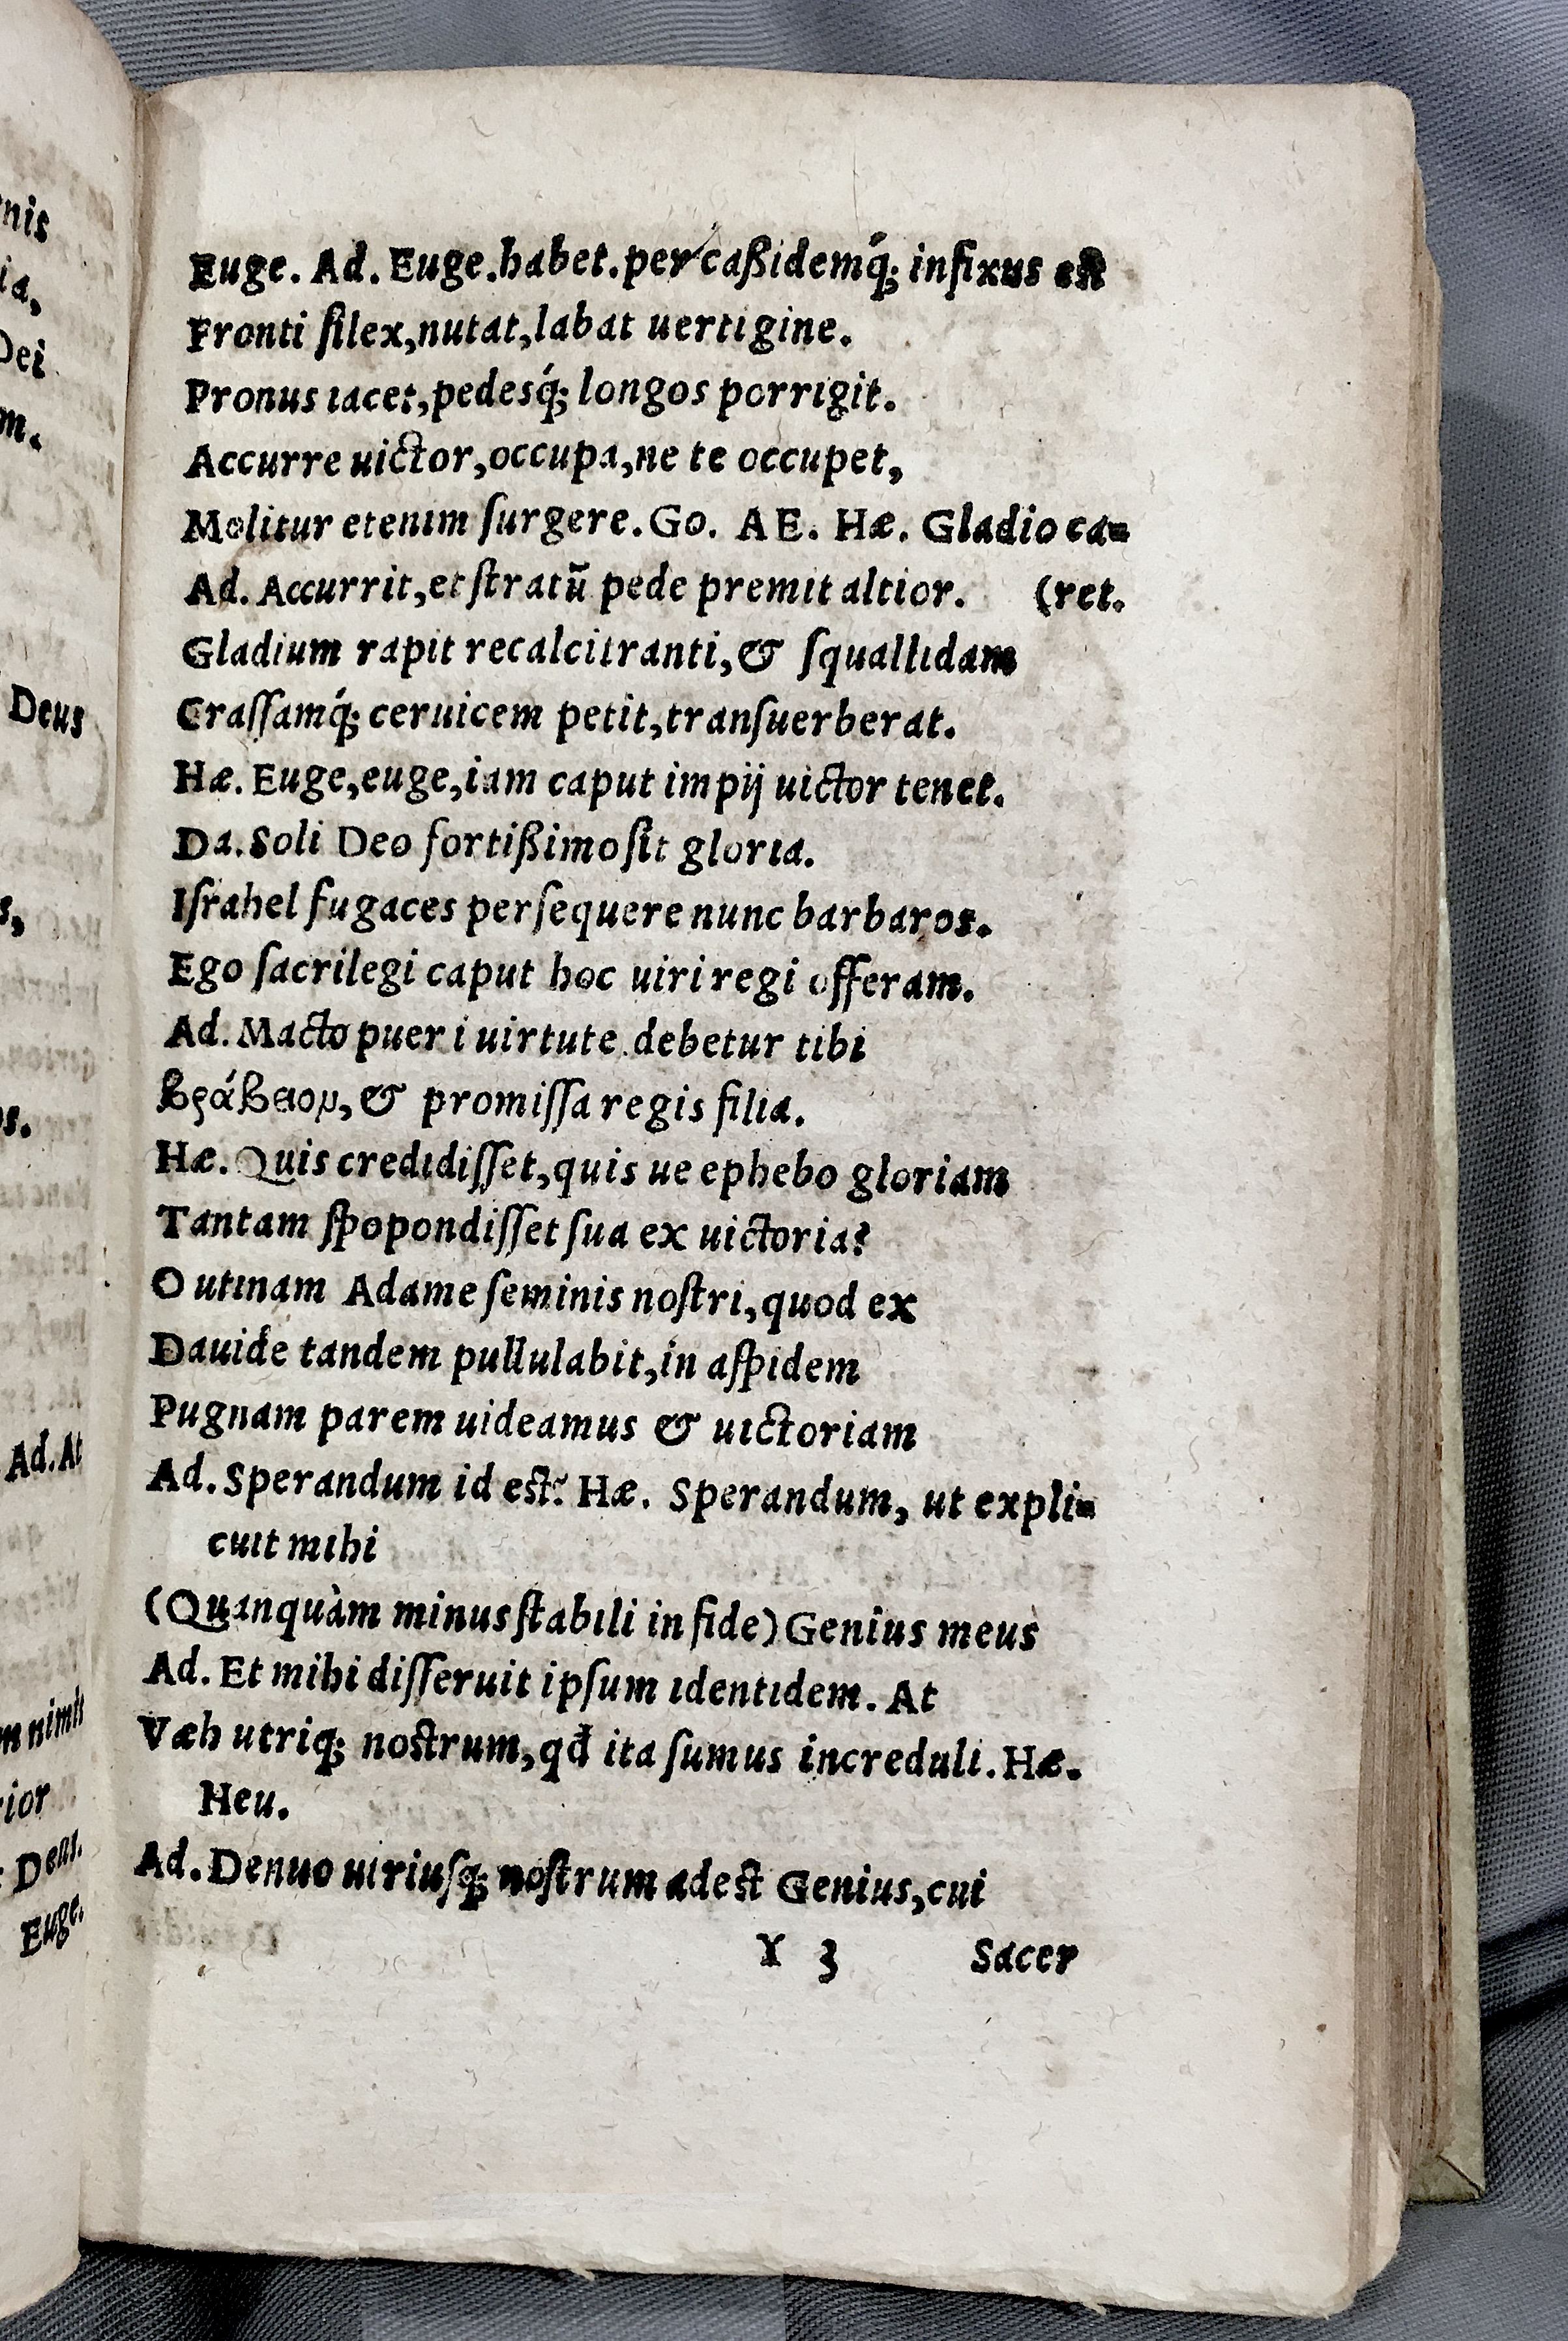 nis
ia,
Dei
m.
Deus
s,
os.
Ad. At
m nimis
rior
Deus.
Euge.
Euge. Ad. Euge.habet.per caßidemq́; infixus est
Fronti ſilex,nutat,labat uertigine.
Pronus iacet,pedesq́; longos porrigit.
Accurre uictor,occupa,ne te occupet,
Molitur etenim ſurgere.Go. AE. Hæ. Gladio ca=
Ad. Accurrit,et ſtratū pede premit altior. (ret.
Gladium rapit recalcitranti,& ſquallidam
Craſſamq́; ceruicem petit,tranſuerberat.
Hæ. Euge,euge,iam caput impij uictor tenet.
Da. Soli Deo fortißimo ſit gloria.
Iſrahel fugaces perſequere nunc barbaros.
Ego ſacrilegi caput hoc uiri regi offeram.
Ad. Macto puer i uirtute debetur tibi
βράβειον, & promiſſa regis filia.
Hæ. Quis credidiſſet,quis ue ephebo gloriam
Tantam ſpopondiſſet ſua ex uictoria?
O utinam Adame ſeminis noſtri,quod ex
Dauide tandem pullulabit,in aſpidem
Pugnam parem uideamus & uictoriam
Ad. Sperandum id est? Hæ. Sperandum, ut expli=
cuit mihi
(Quanquàm minus ſtabili in fide) Genius meus
Ad. Et mihi diſſeruit ipſum identidem. At
Væh utriq; nostrum,qđ ita ſumus increduli. Hæ.
Heu.
Ad. Denuo utriuſq; noſtrum adest Genius,cui
Y 3 Sacer